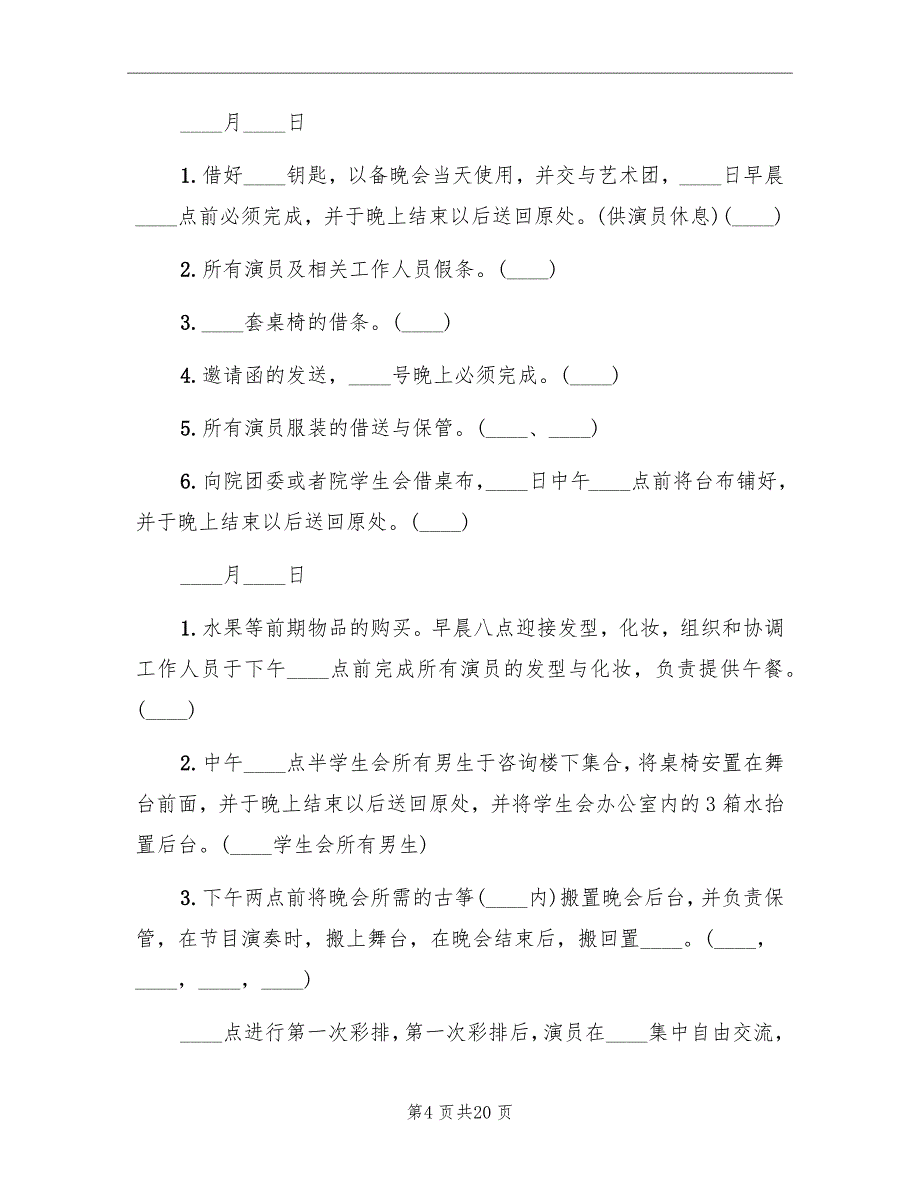 ____月____日
1. 借好____钥匙，以备晚会当天使用，并交与艺术团，____日早晨
____点前必须完成，并于晚上结束以后送回原处。(供演员休息)(____)
2. 所有演员及相关工作人员假条。(____)
3. ____套桌椅的借条。(____)
4. 邀请函的发送，____号晚上必须完成。(____)
5. 所有演员服装的借送与保管。(____、____)
6. 向院团委或者院学生会借桌布，____日中午____点前将台布铺好，
并于晚上结束以后送回原处。(____)
____月____日
1. 水果等前期物品的购买。早晨八点迎接发型，化妆，组织和协调
工作人员于下午____点前完成所有演员的发型与化妆，负责提供午餐。
(____)
2. 中午____点半学生会所有男生于咨询楼下集合，将桌椅安置在舞
台前面，并于晚上结束以后送回原处，并将学生会办公室内的 3 箱水抬
置后台。(____学生会所有男生)
3. 下午两点前将晚会所需的古筝(____内)搬置晚会后台，并负责保
管，在节目演奏时，搬上舞台，在晚会结束后，搬回置____。(____，
____，____，____)
____点进行第一次彩排，第一次彩排后，演员在____集中自由交流，
第4 页共20 页